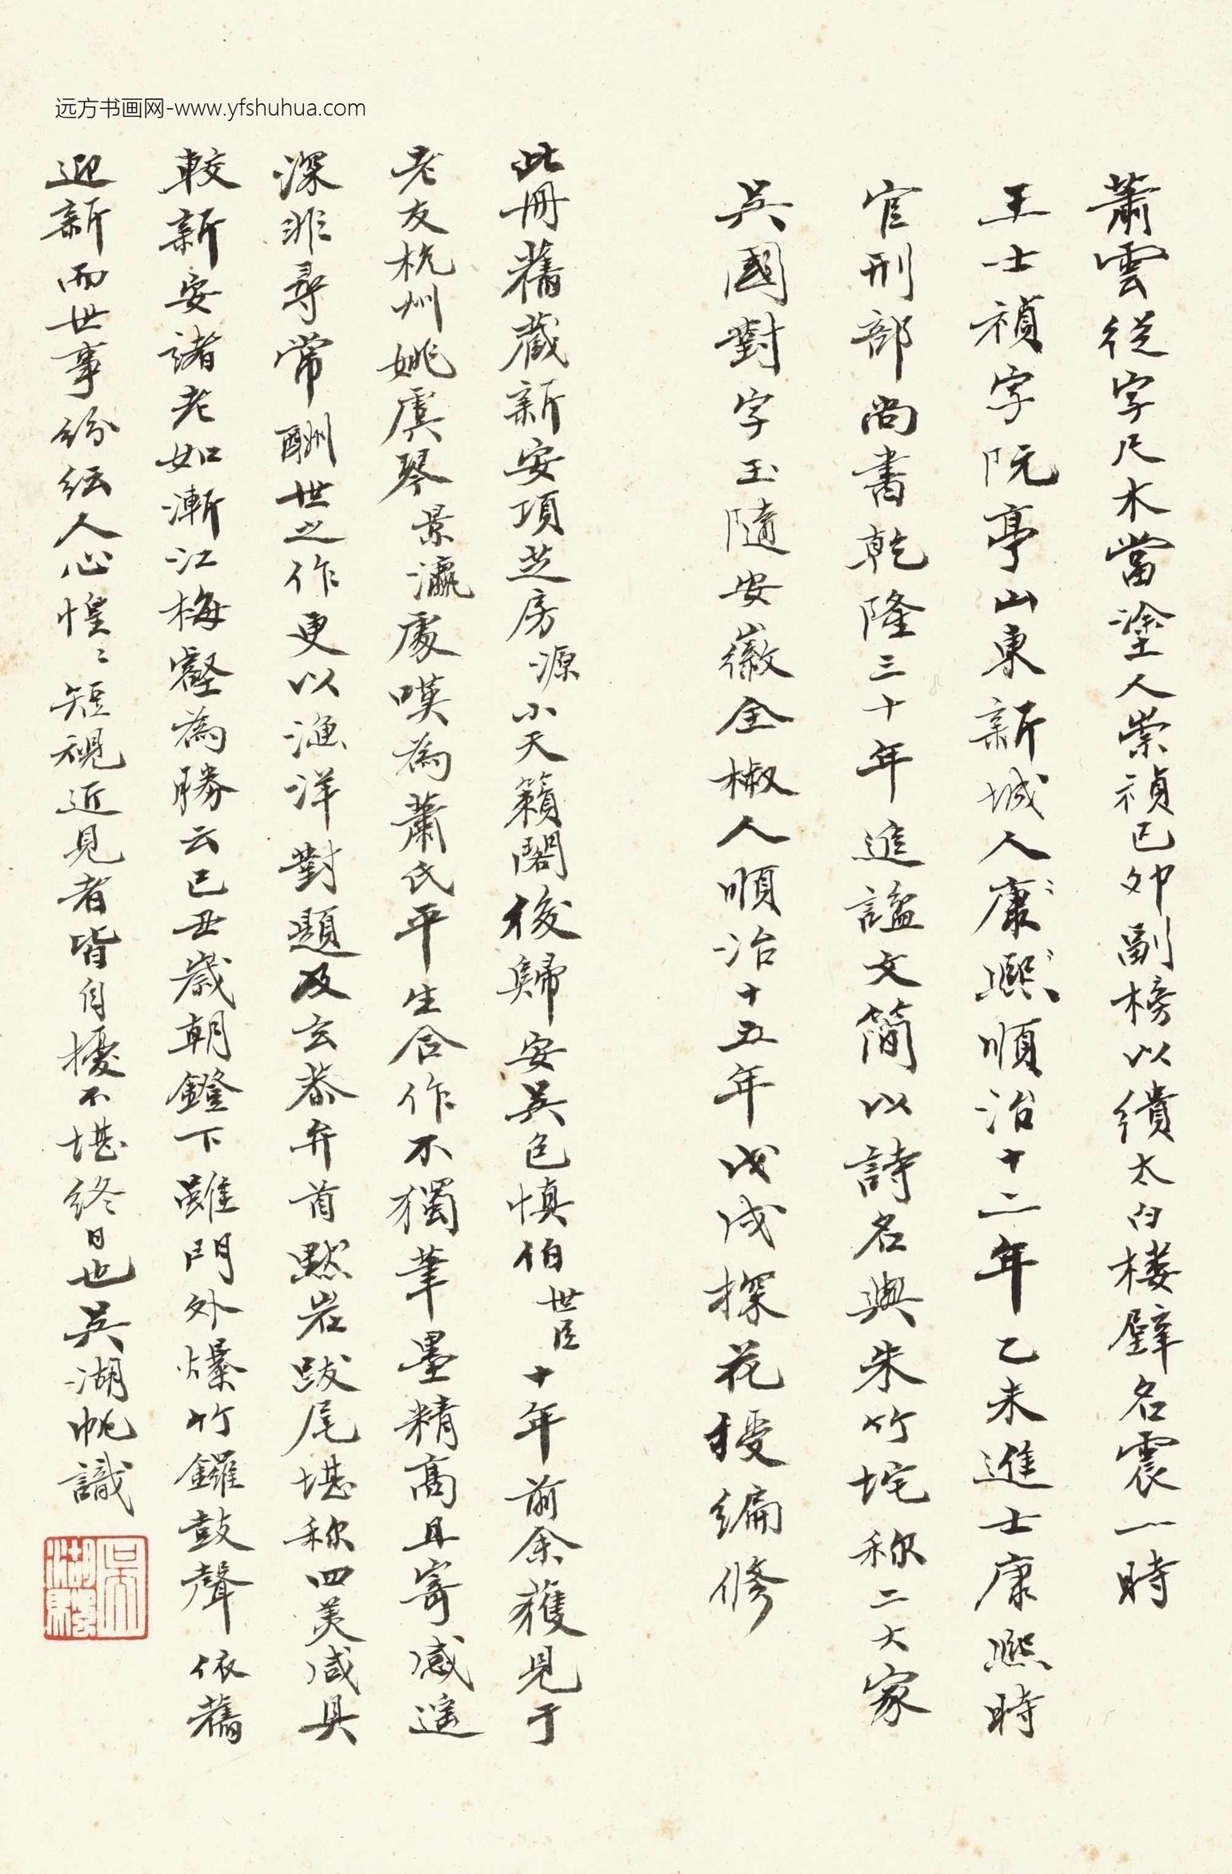 远方书画网-www.yfshuhua.com
蕭雲從字尺木當塗人崇禎己卯副榜以繢太白樓壁名震一時
王士禎字阮亭山東新城人康熙順治十二年乙未進士康熙時
官刑部尚書乾隆三十年追諡文簡以詩名與朱竹垞称二大家
吳國對字玉隨安徽全椒人順治十五年戊戌探花授編修
此冊舊藏新安項芝房源小天籟閣後歸安吳包慎伯世臣十年前余獲見于
老友杭州姚虞琴景瀛處嘆為蕭氏平生合作不獨筆墨精高且寄感遥
深非尋常酬世之作更以漁洋對題及玄恭弁首默岩跋尾堪称四美咸具
較新安諸老如漸江梅壑為勝云己丑歲朝鐙下雖門外爆竹鑼鼓聲依舊
迎新而世事紛紜人心惶〻短視近見者皆自擾不堪終日也吳湖帆識